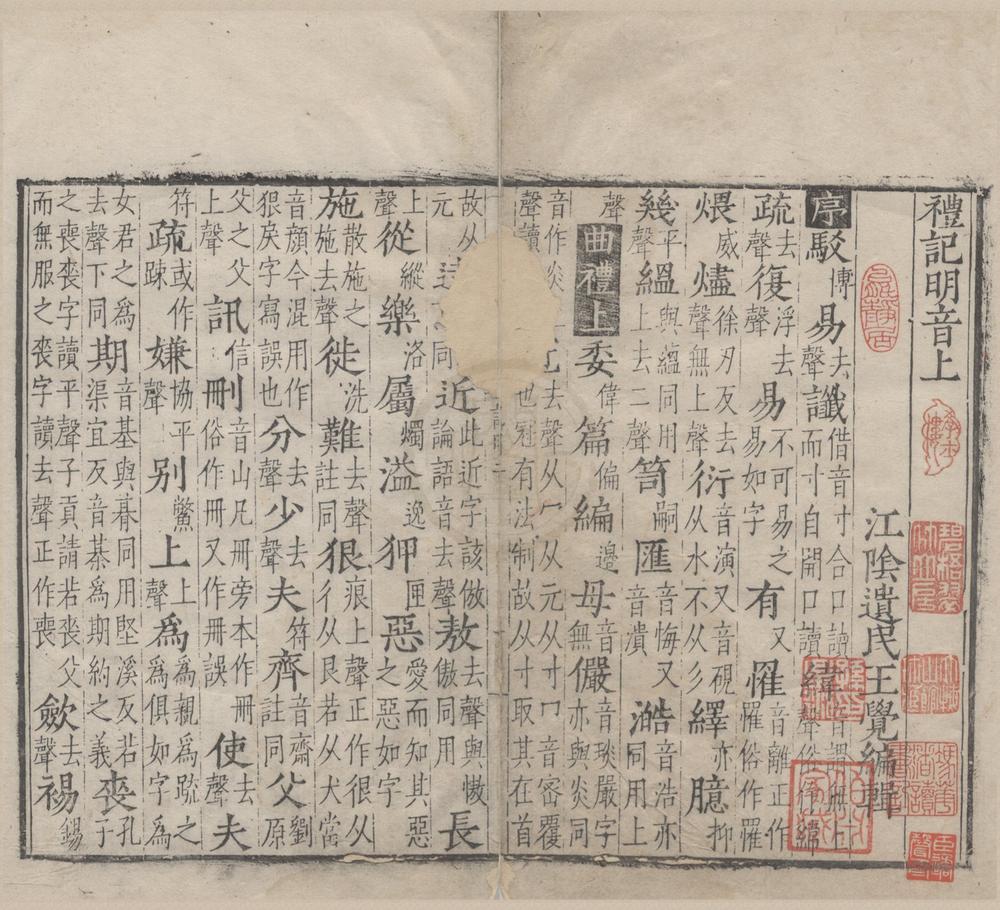 禮記明音上
江陰遺民王覺編輯
序駁博易去聲讖借音寸合口讀而寸自開口讀緯聲俗作緯
疏去聲復浮去聲易不可易之易易如字有又罹音離正作罹俗作罹
煨威燼徐刃反去聲無上聲衍音演又音硯从水不从彡繹亦臆抑
幾平聲縕與蘊同用上去二聲笥嗣匯音悔又音潰澔音浩亦同用上
聲曲禮上委偉篇偏編邊毋音無儼音琰嚴字亦與炎同
音作炎聲讀去聲从冖从元从寸冖音宻覆也冠有法制故从寸取其在首
故从元同近此近字該倣論語音去聲敖去聲與憿傲同用長
上聲從縱樂洛屬燭溢逸狎匣惡愛而知其惡之惡如字
施散施之施去聲徙洗難去聲註同狠痕上聲正作很从彳从艮若从犬當
音顔今混用作狠矣字寫誤也分去聲少去聲夫符齊音齋註同父劉原
父之父上聲訊信刪音山凡冊旁本作冊俗作冊又作冊誤使去聲夫
符疏或作踈嫌協平聲别鱉上上聲爲爲親爲踈之爲俱如字爲
女君之爲去聲下同期音基與朞同用堅溪反若渠宜反音棊爲期約之義喪孔子
之喪喪字讀平聲子貢請若喪父而無服之喪字讀去聲正作喪歛去聲裼錫